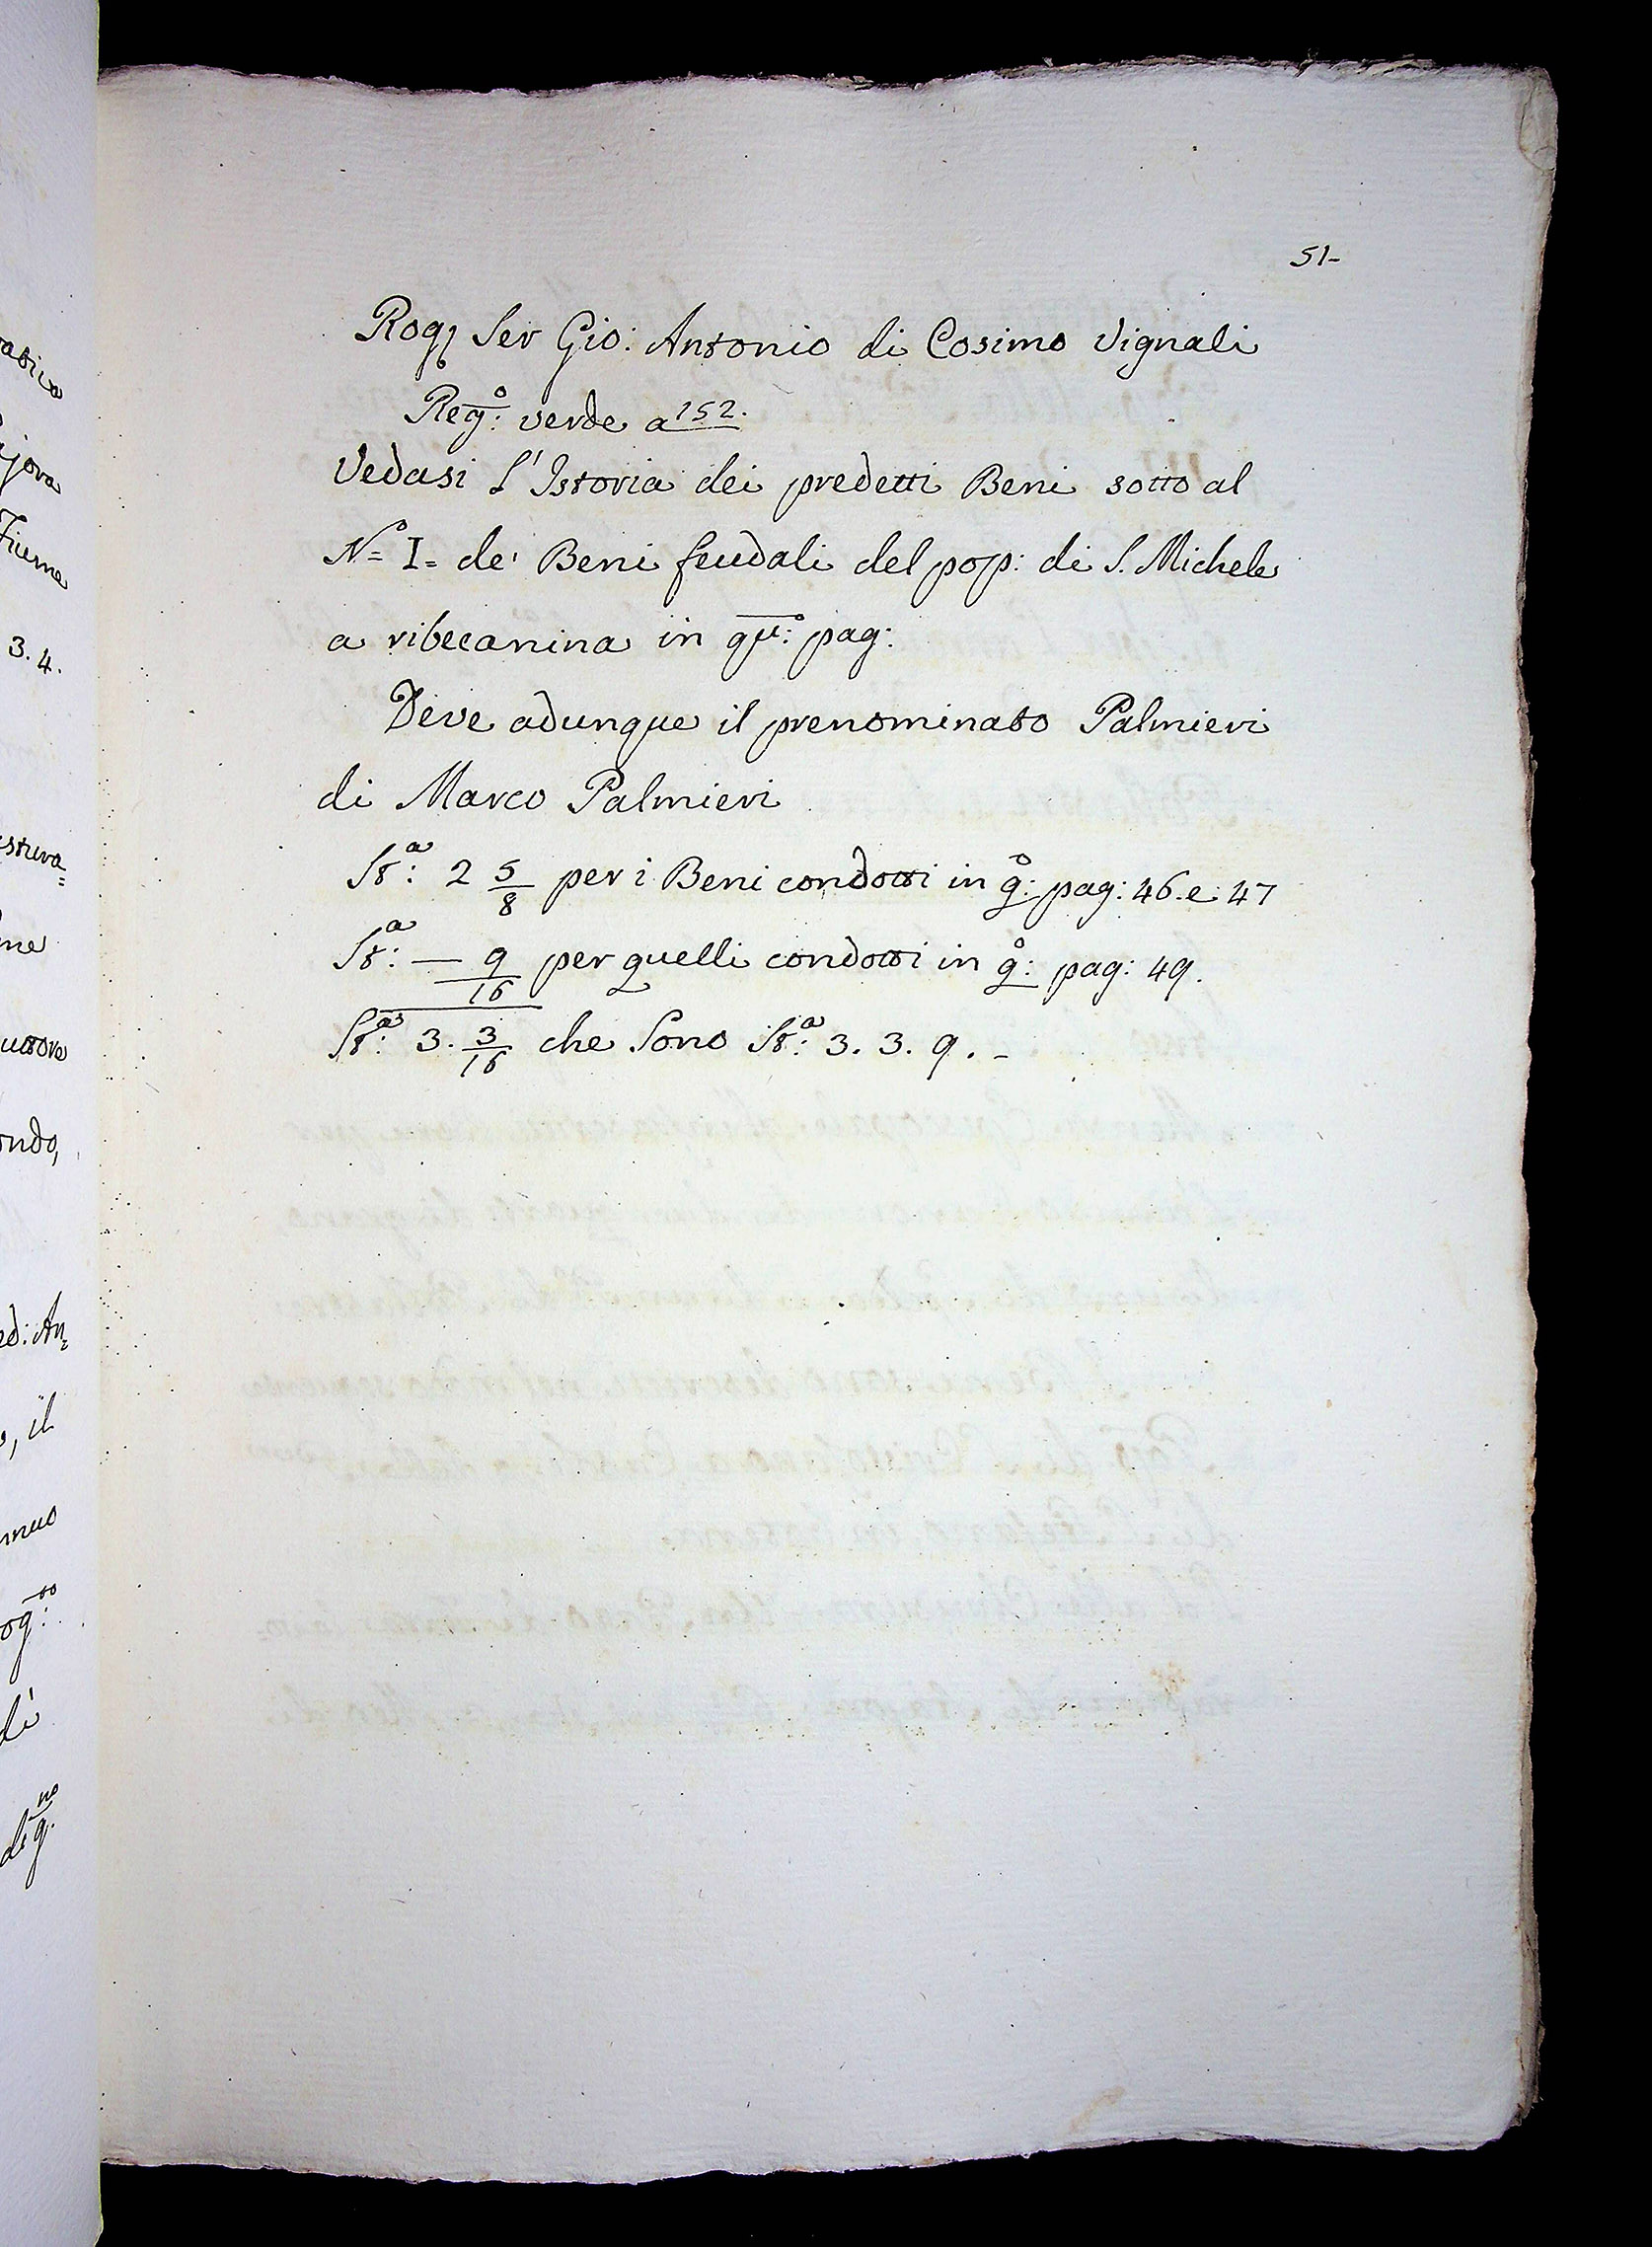 51-
Rog Ser Gio: Antonio di Cosimo Vignali
Reg:º verde a 152.
Vedasi l'Istoria dei predetti Beni sotto al
Nº= I= de' Beni feudali del pop: di S. Michele
a ribecanina in qu:º pag:
Deve adunque il prenominato Palmieri
di Marco Palmieri
St:ª 2 5/8 per i Beni condotti in q:º pag: 46. e 47
St:ª — 9/16 per quelli condotti in q:º pag: 49.
St:ª 3. 3/16 che Sono St:ª 3. 3. 9. -
3. 4.
ondo,
, il
dì